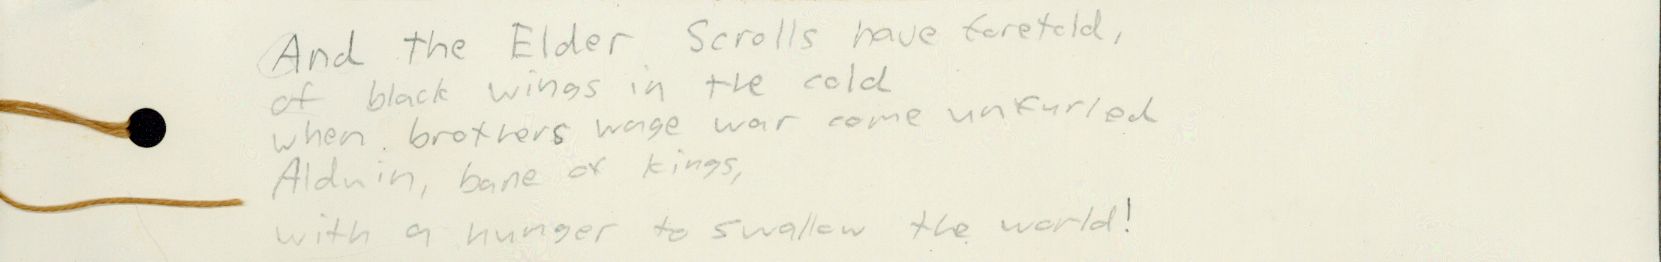 And the Elder Scrolls have foretold,
of black wings in the cold
when brothers wage war come unfurled
Alduin, bane of kings,
with a hunger to swallow the world!